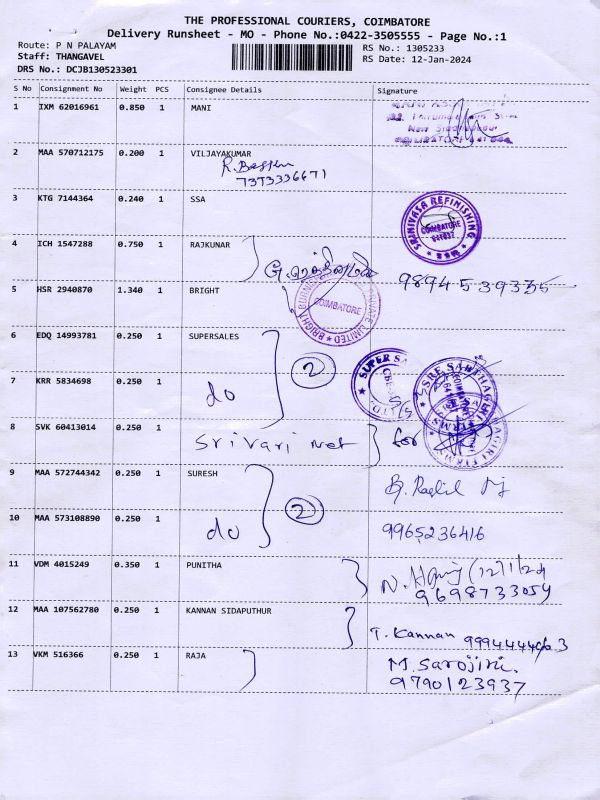 THE PROFESSIONAL COURIERS, COIMBATORE
Delivery Runsheet - MO - Phone No.:0422-3505555 - Page No.:1
Route: P N PALAYAM
RS No.: 1305233
Staff: THANGAVEL
RS Date: 12-Jan-2024
DRS No.: DCJB130523301
S No Consignment No Weight PCS Consignee Details Signature
1 IXM 62016961 0.850 1 MANI
2 MAA 570712175 0.200 1 VILJAYAKUMAR
7373336671
3 KTG 7144364 0.240 1 SSA
SRINIVASA REFINISHING
COIMBATORE
4 ICH 1547288 0.750 1 RAJKUNAR
9894539335
5 HSR 2940870 1.340 1 BRIGHT
COIMBATORE
6 EDQ 14993781 0.250 1 SUPERSALES
2
7 KRR 5834698 0.250 1
do
8 SVK 60413014 0.250 1
Srivari Net for
9 MAA 572744342 0.250 1 SURESH
2
10 MAA 573108890 0.250 1
do
9965236416
11 VDM 4015249 0.350 1 PUNITHA
(12/1/24
9698733054
12 MAA 107562780 0.250 1 KANNAN SIDAPUTHUR
T. Kannan
13 VKM 516366 0.250 1 RAJA
M. Sarojini.
9790123937